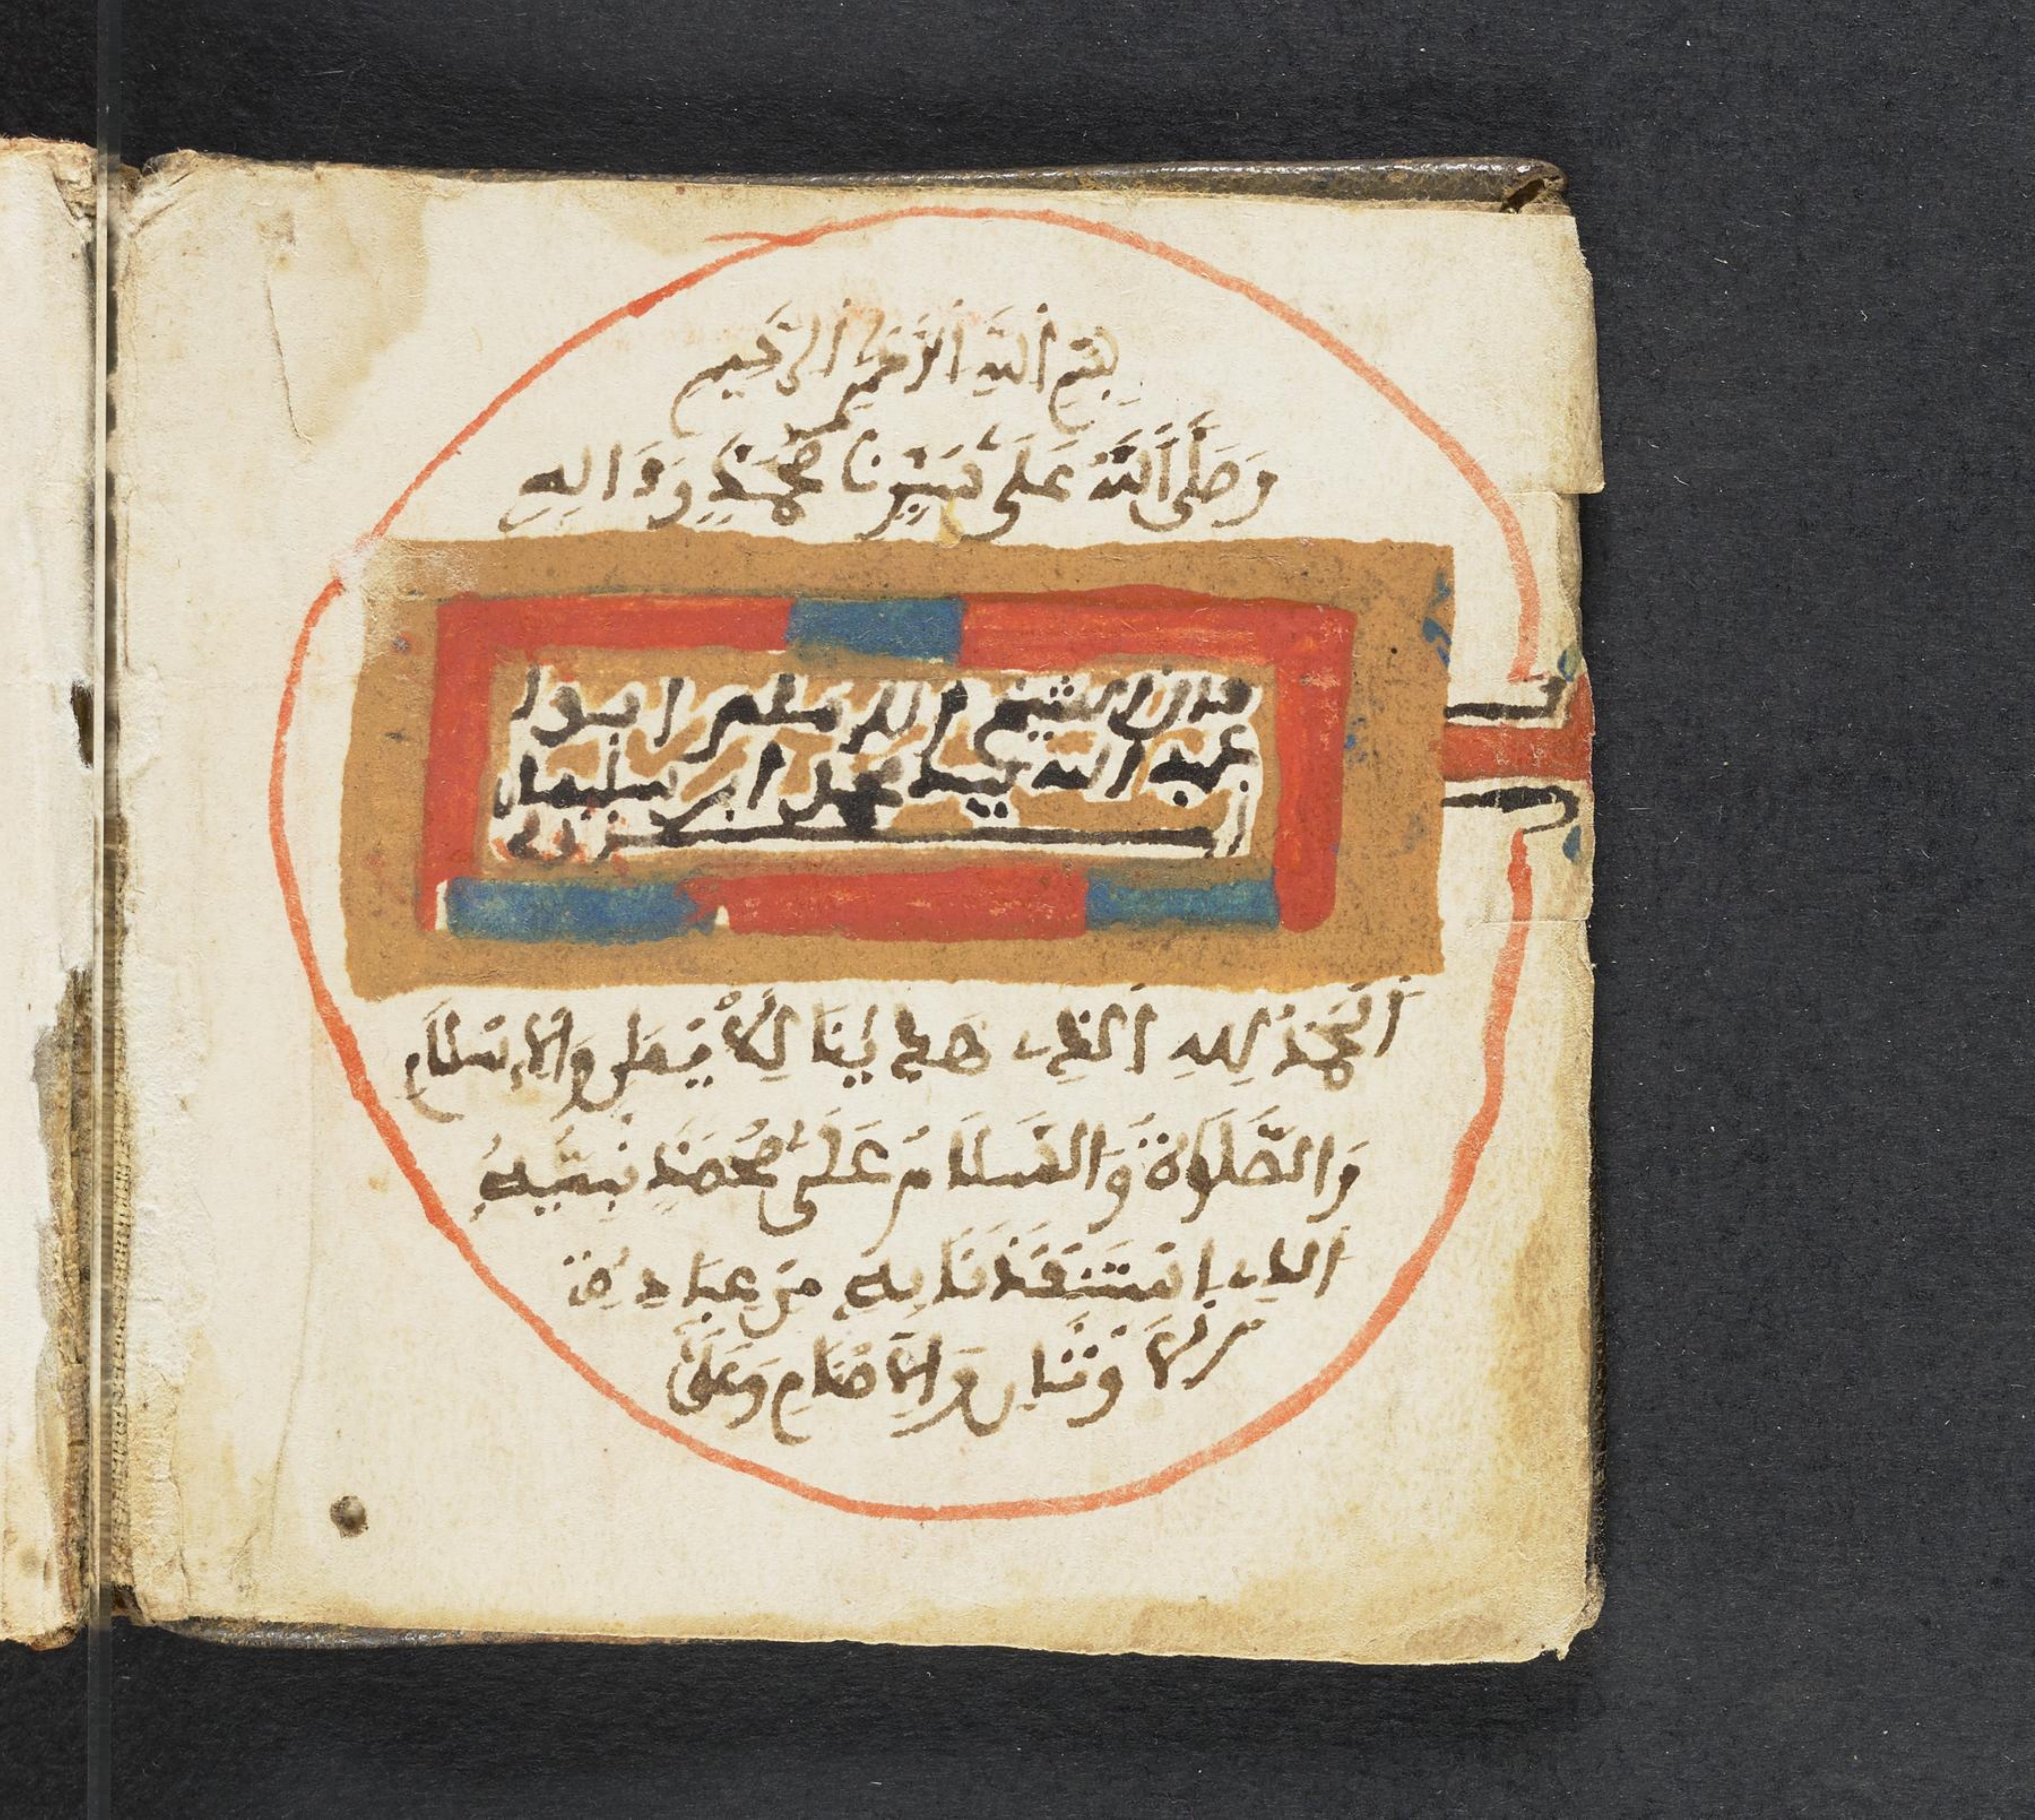 بِسْمِ اللَّهِ الرَّحْمَٰنِ الرَّحِيمِ
وَصَلَّى اللَّهُ عَلَى سَيِّدِنَا مُحَمَّدٍ وَءَالِهِ
قال الشيخ الامام ابوا
عبد الله سيد محمد ابن سليمان
الجزولي
اَلْحَمْدُ لِلهِ الَّذِي هَدَايٰنَا لِلْإِيمَٰنِ وَالْإِسْلَامِ
وَالصَّلَوٰةُ وَالسَّلَامُ عَلَى مُحَمَّدٍ نَبِيِّهِ
الَّذِي اِسْتَنْقَذَنَا بِهِ مِنْ عِبَادَةِ
الْأَوْثَانِ وَالْأَصْنَامِ وَعَلَى